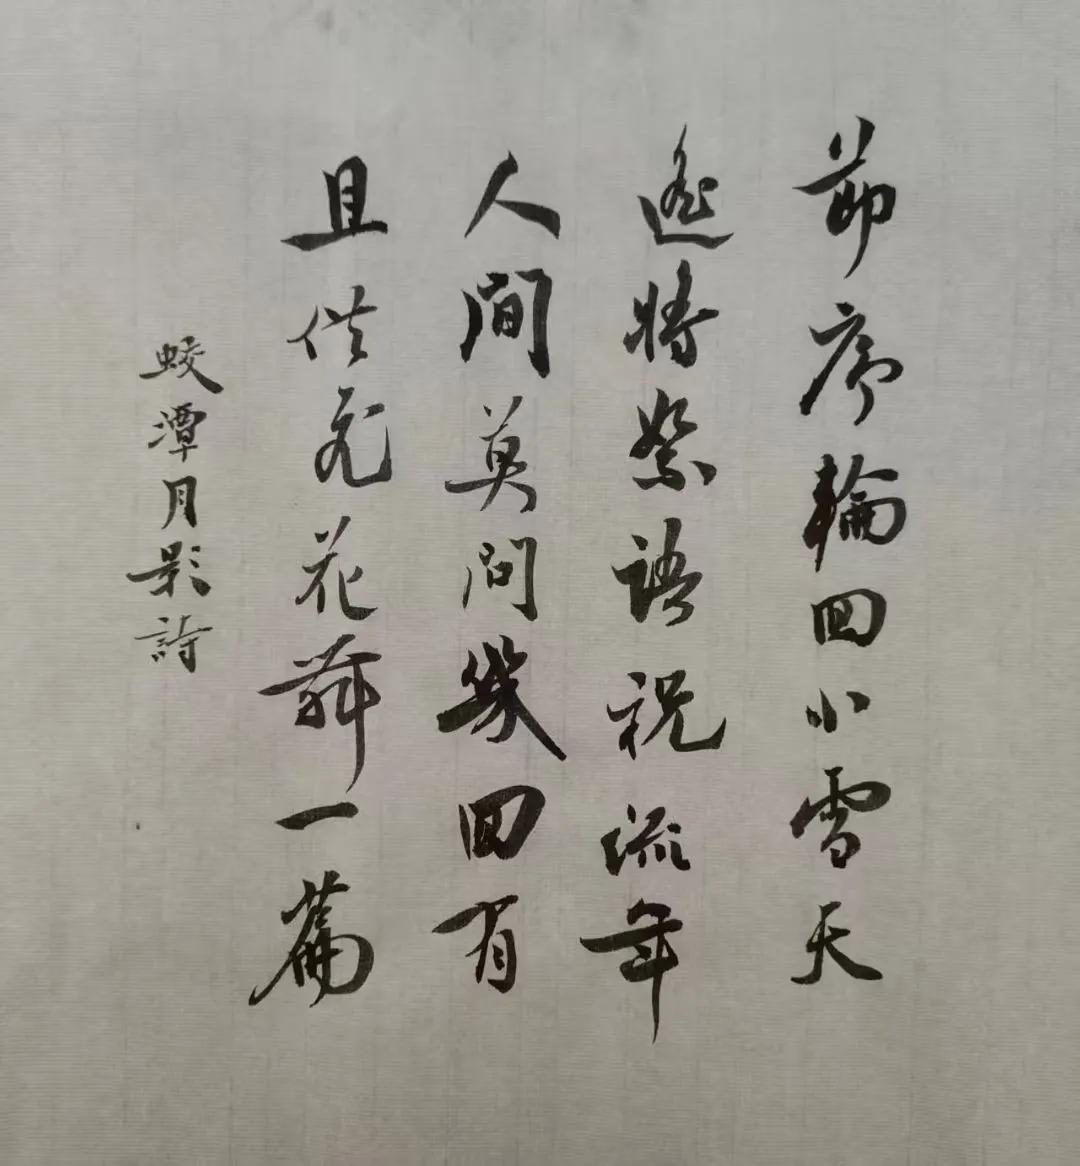 節序輪回小雪天
遙將絮語祝流年
人間莫問幾回有
且供飛花舞一篇
蛟潭月影詩